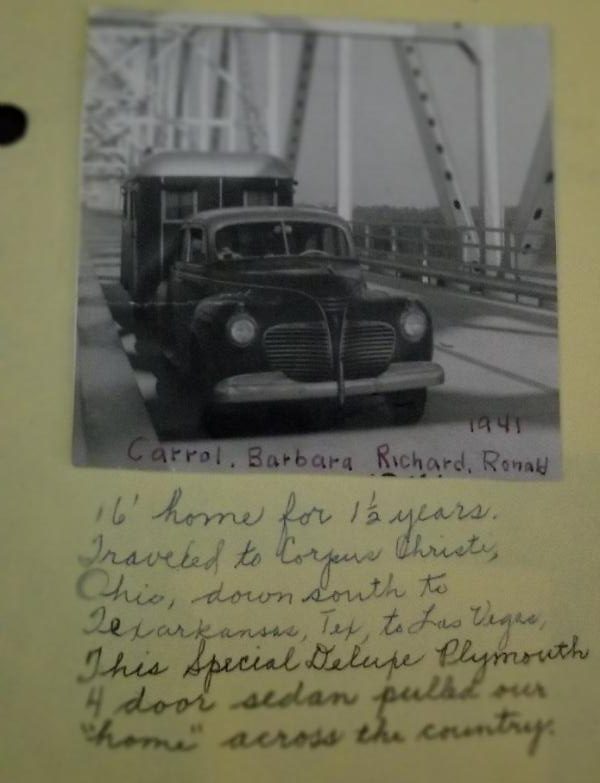 1941
Carrol, Barbara Richard, Ronald
16' home for 1½ years.
Traveled to Corpus Christi,
Ohio, down south to
Texarkansas, Tex, to Las Vegas,
This Special Deluxe Plymouth
4 door sedan pulled our
"home" across the country.